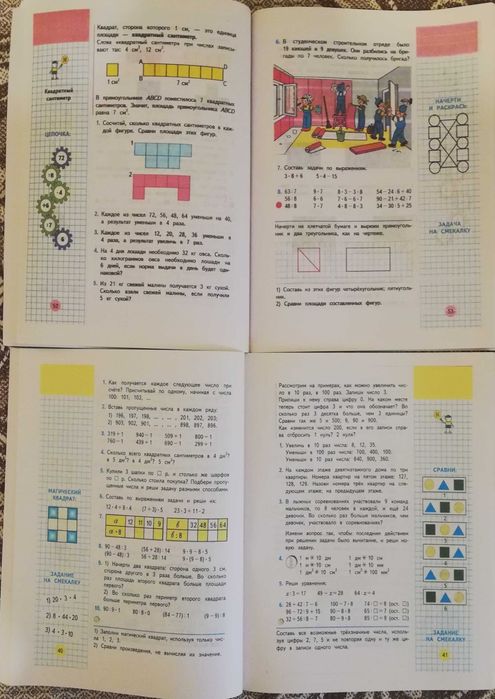 Квадрат, сторона которого 1 см, — это единица
площади — квадратный сантиметр.
Слова квадратный сантиметр при числах записы-
вают так: 4 см², 12 см².
Квадратный
сантиметр
A
B
D
C
1 см²
7 см²
В прямоугольнике ABCD поместилось 7 квадратных
сантиметров. Значит, площадь прямоугольника ABCD
равна 7 см².
ЦЕПОЧКА:
72
1. Сосчитай, сколько квадратных сантиметров в каж-
дой фигуре. Сравни площади этих фигур.
1
2
2. Каждое из чисел 72, 56, 48, 64 уменьши на 40,
а результат уменьши в 4 раза.
3. Каждое из чисел 12, 20, 28, 36 уменьши в
4 раза, а результат увеличь в 7 раз.
4. На 4 дня лошади необходимо 32 кг овса. Сколь-
ко килограммов овса необходимо лошади на
6 дней, если норма выдачи в день будет оди-
наковой?
5. Из 21 кг свежей малины получается 3 кг сухой.
Сколько взяли свежей малины, если получили
5 кг сухой?
52
6. В студенческом строительном отряде было
19 юношей и 9 девушек. Они разбились на бри-
гады по 7 человек. Сколько получилось бригад?
НАЧЕРТИ
И РАСКРАСЬ:
7. Составь задачи по выражениям.
3 · 8 + 6 5 · 4 − 15
8. 63 : 7 9 · 7 8 · 3 − 3 · 8 54 − 24 : 6 + 40
56 : 8 6 · 6 7 · 6 − 6 · 7 90 − 21 + 42 : 7
48 : 8 7 · 7 4 · 8 − 8 · 3 34 − 30 : 5 + 25
ЗАДАЧА
НА СМЕКАЛКУ
Начерти на клетчатой бумаге и вырежи прямоуголь-
ник и два треугольника, как на чертеже.
1) Составь из этих фигур четырёхугольник; пятиуголь-
ник.
2) Сравни площади составленных фигур.
53
1. Как получается каждое следующее число при
счёте? Присчитывай по одному, начиная с числа
100: 101, 102, ...
2. Вставь пропущенные числа в каждом ряду:
1) 196, 197, 198, ... 201, 202, 203;
2) 903, 902, 901, ... 898, 897, 896.
3. 319 + 1 940 − 1 509 + 1 800 − 1
760 − 1 439 + 1 690 − 1 299 + 1
4. Сколько всего квадратных сантиметров в 4 дм²?
в 5 дм²? в 4 дм² 5 см²?
5. Купили 3 шапки по □ р. и столько же шарфов
по □ р. Сколько стоила покупка? Подбери пропу-
щенные числа и реши задачу разными способами.
МАГИЧЕСКИЙ
КВАДРАТ:
6. Составь по выражениям задачи и реши их:
12 · 4 + 8 · 4 (7 + 3) · 5 23 · 3 + 11 · 2
7.
a 12 11 10 9
a · 8
b 32 48 56 64
b : 8
ЗАДАНИЕ
НА СМЕКАЛКУ
9. 1) Начерти два квадрата: сторона одного 3 см,
сторона другого в 3 раза больше. Во сколько
раз площадь второго квадрата больше площади
первого?
2) Во сколько раз периметр второго квадрата
больше периметра первого?
1) Заполни магический квадрат, используя только чис-
ла 1, 2, 3.
2) Сравни произведения, не вычисляя их значения.
40
Рассмотрим на примерах, как можно увеличить чис-
ло в 10 раз, в 100 раз. Запиши число 3.
Припиши к нему справа цифру 0. На каком месте
теперь стоит цифра 3 и что она обозначает? Во
сколько раз 3 десятка больше, чем 3 единицы?
Сравни так же 5 и 500; 9 и 90; 9 и 900.
Как изменится число 200, если в его записи спра-
ва отбросить 1 нуль? 2 нуля?
1. Увеличь в 10 раз числа: 8, 12, 35.
Уменьши в 100 раз числа: 700, 400, 100.
Уменьши в 10 раз числа: 640, 900, 360.
СРАВНИ:
2. На каждом этаже девятиэтажного дома по три
квартиры. Номера квартир на пятом этаже: 127,
128, 129. Назови номера трёх квартир на сле-
дующем этаже; на предыдущем этаже.
3. В лыжных соревнованиях участвовали 9 команд
мальчиков, по 8 человек в каждой, и ещё 24
девочки. Во сколько раз больше мальчиков, чем
девочек, участвовало в соревнованиях?
Измени вопрос так, чтобы последним действием
при решении задачи было вычитание, и реши но-
вую задачу.
5. Реши уравнения:
x : 3 = 17 49 − x = 28 64 : x = 4
1
2
3
4
5
6
ЗАДАНИЕ
НА СМЕКАЛКУ
Составь все возможные трёхзначные числа, исполь-
зуя цифры 2, 7, 5 и не повторяя одну и ту же ци-
фру в записи одного числа.
41